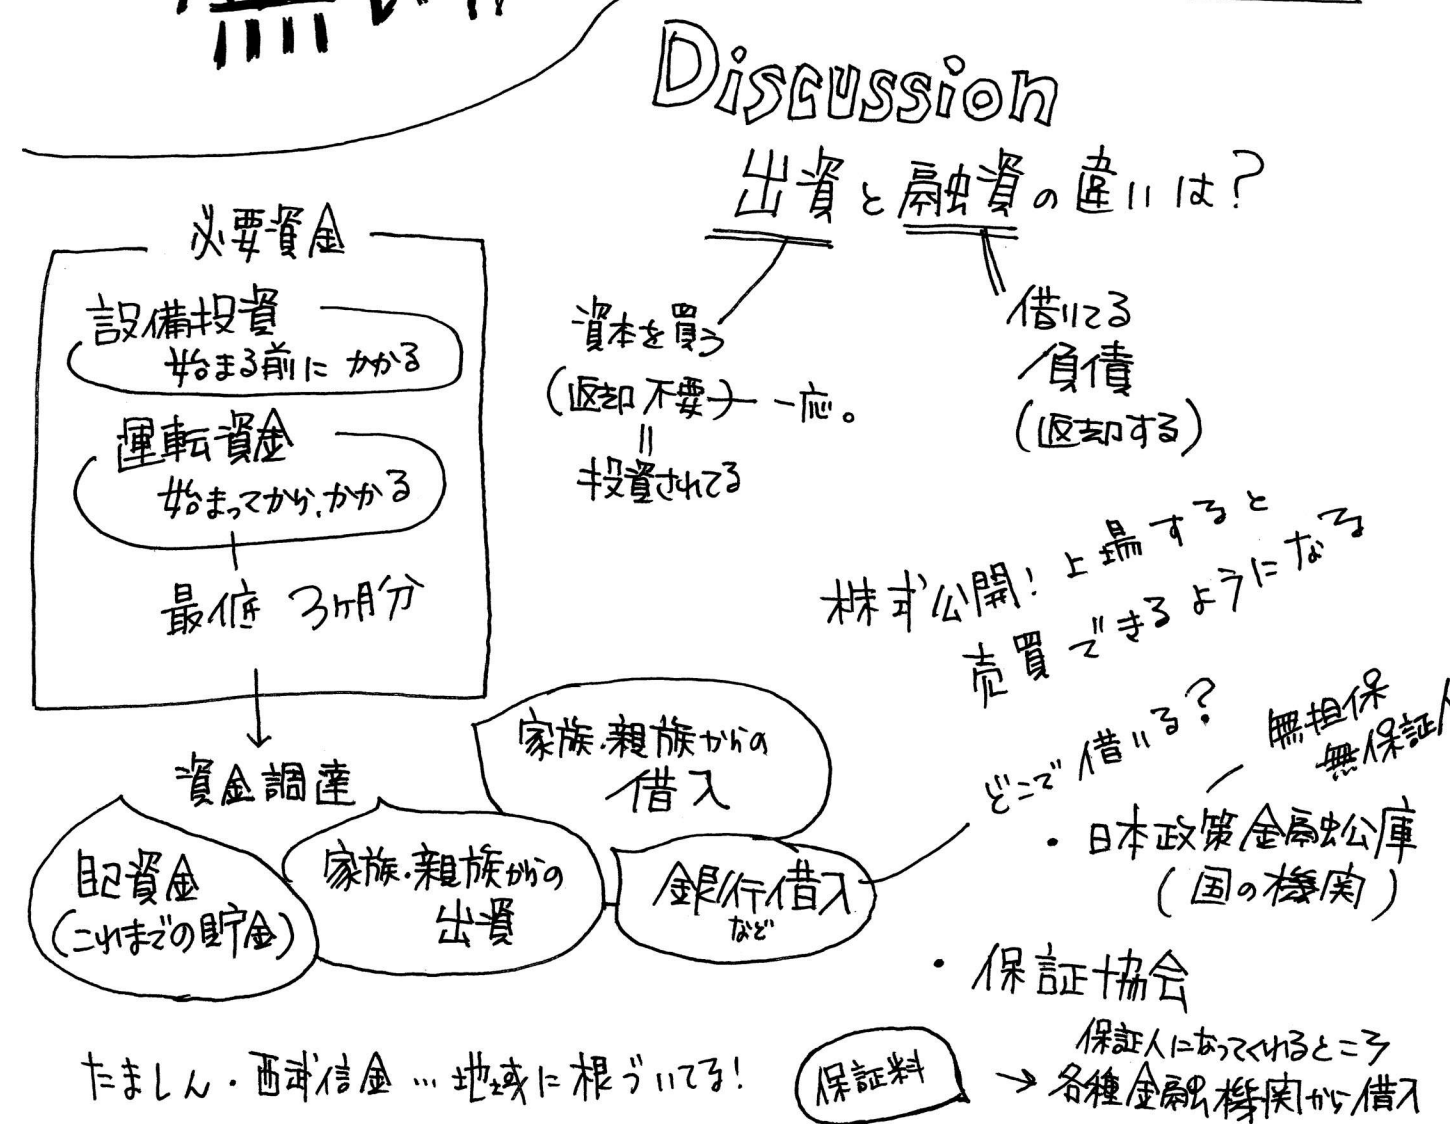 Discussion
出資と融資の違いは?
資本を買う
(返却不要) 一応。
=
投資されてる
借りてる
負債
(返却する)
必要資金
設備投資
始まる前に かかる
運転資金
始まってから、かかる
最低 3ヶ月分
株式公開! 上場すると
売買できるようになる
資金調達
自己資金
(これまでの貯金)
家族・親族からの
出資
家族・親族からの
借入
銀行借入
など
どこで借りる?
無担保
無保証人
・日本政策金融公庫
(国の機関)
・保証協会
保証人になってくれるところ
→ 各種金融機関から借入
保証料
たましん・西武信金…地域に根づいてる!